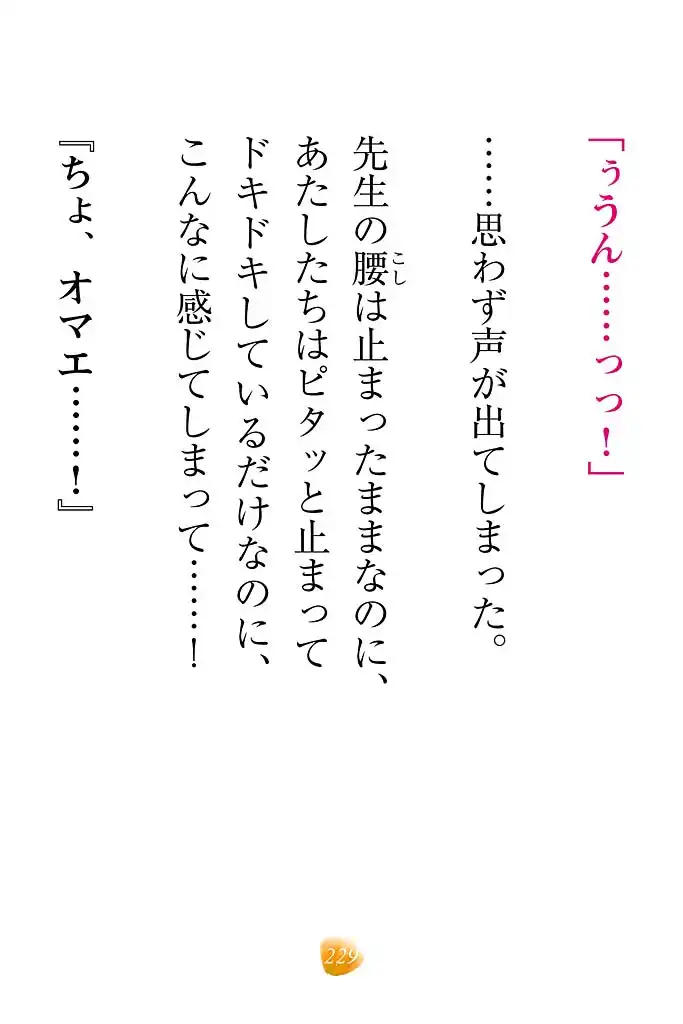 「ぅうん……っっ！」
……思わず声が出てしまった。
先生の腰は止まったままなのに、
こし
あたしたちはピタッと止まって
ドキドキしているだけなのに、
こんなに感じてしまって………！
『ちょ、オマエ……！』
229